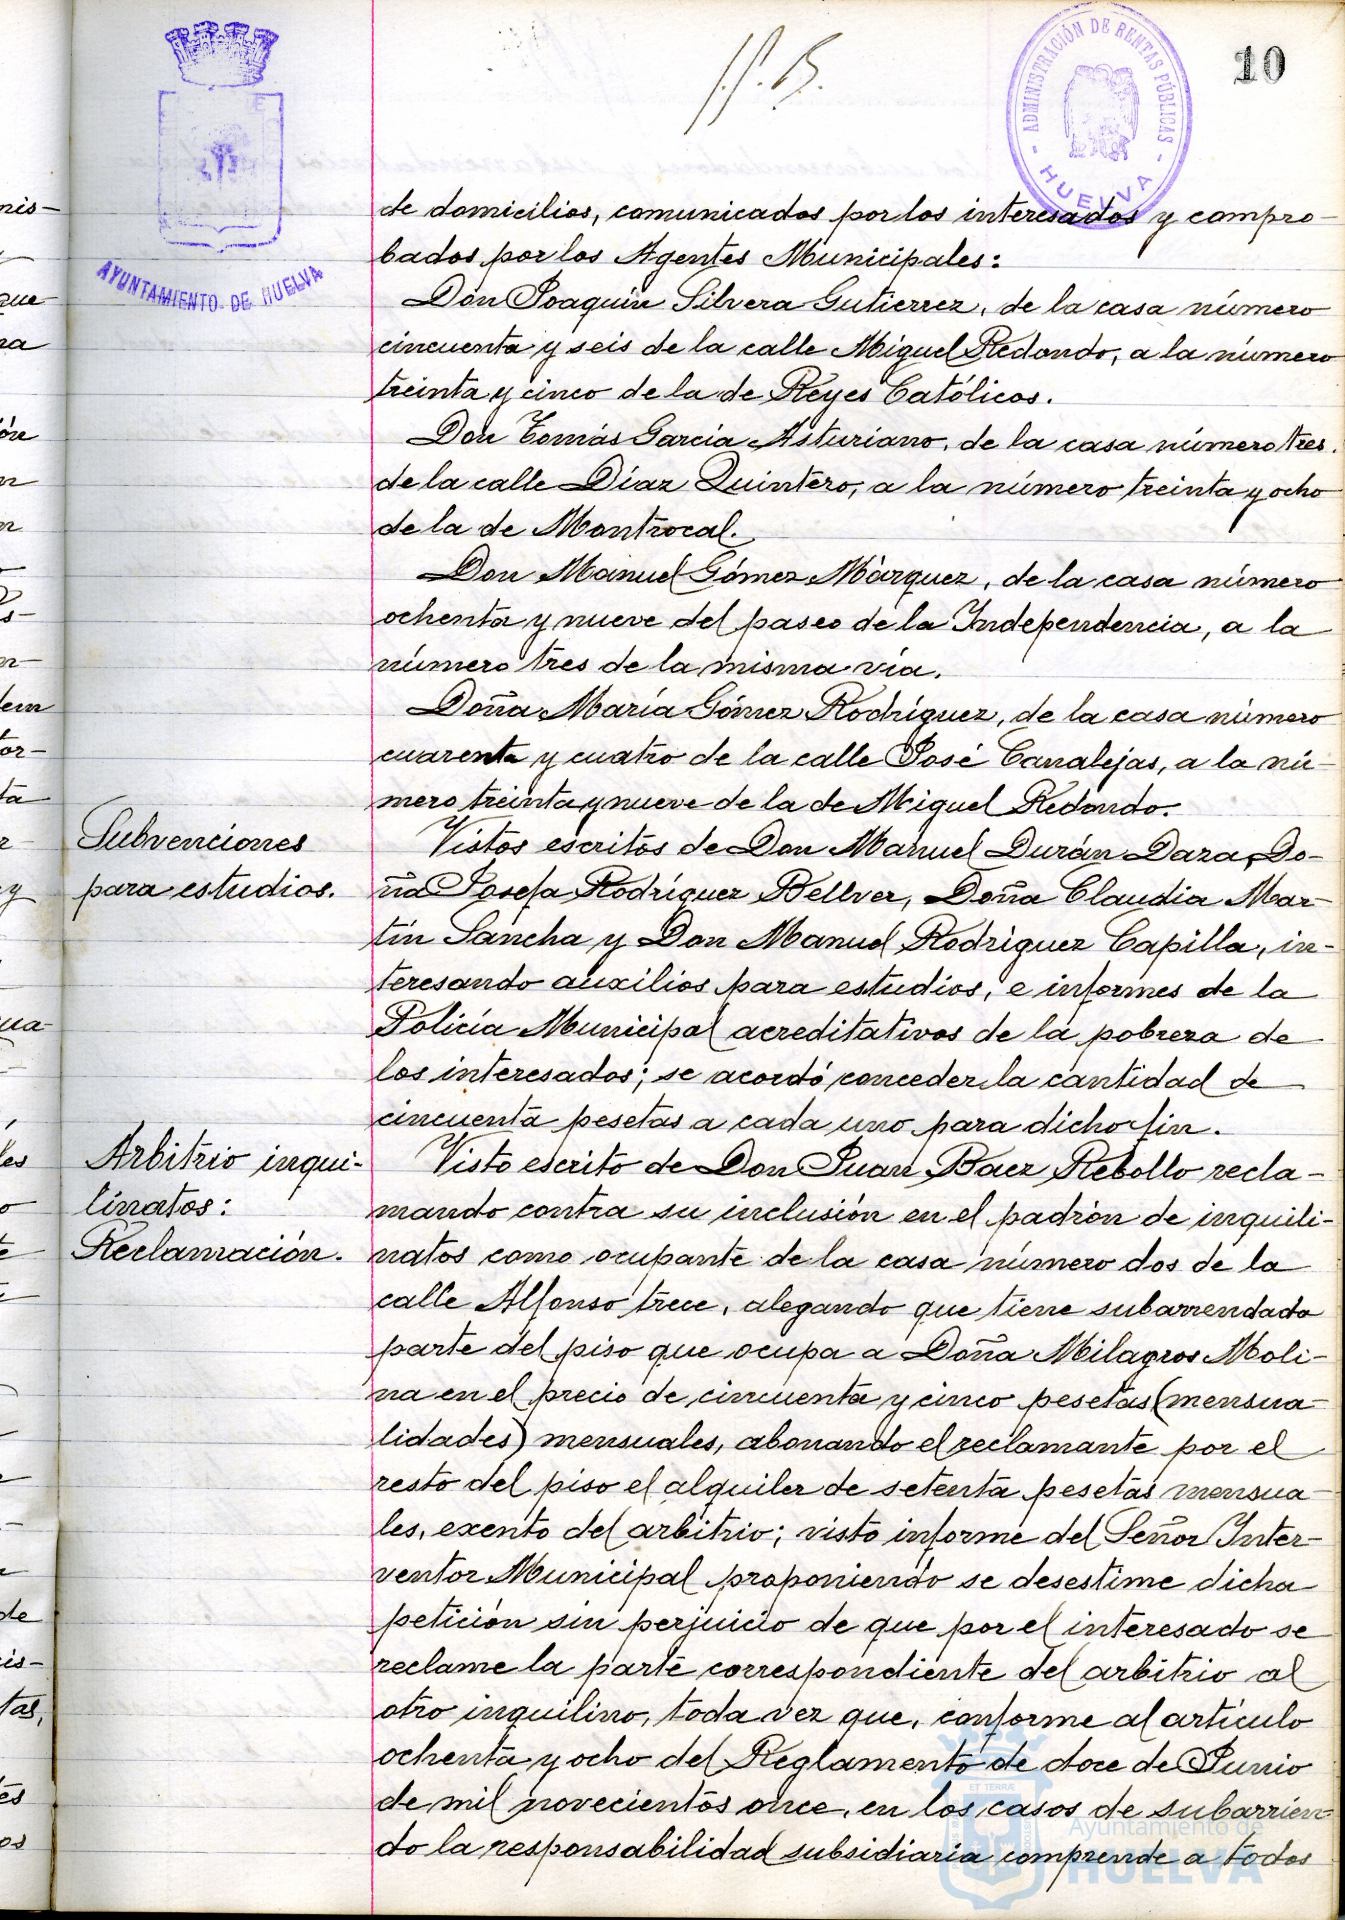 10
ADMINISTRACIÓN DE RENTAS PÚBLICAS
- HUELVA -
AYUNTAMIENTO DE HUELVA
de domicilios, comunicados por los interesados y compro-
bados por los Agentes Municipales:
Don Joaquín Silvera Gutierrez, de la casa número
cincuenta y seis de la calle Miguel Redondo, a la número
treinta y cinco de la de Reyes Católicos.
Don Tomás García Asturiano, de la casa número tres
de la calle Díaz Quintero, a la número treinta y ocho
de la de Montrocal.
Don Manuel Gómez Márquez, de la casa número
ochenta y nueve del paseo de la Independencia, a la
número tres de la misma vía.
Doña María Gómez Rodríguez, de la casa número
cuarenta y cuatro de la calle José Canalejas, a la nú-
mero treinta y nueve de la de Miguel Redondo.
Subvenciones
para estudios.
Vistos escritos de Don Manuel Durán Daza, Do-
ña Josefa Rodríguez Bellver, Doña Claudia Mar-
tín Sancha y Don Manuel Rodríguez Capilla, in-
teresando auxilios para estudios, e informes de la
Policía Municipal acreditativos de la pobreza de
los interesados; se acordó conceder la cantidad de
cincuenta pesetas a cada uno para dicho fin.
Arbitrio inqui-
linatos:
Reclamación.
Visto escrito de Don Juan Baez Rebollo recla-
mando contra su inclusión en el padrón de inquili-
natos como ocupante de la casa número dos de la
calle Alfonso trece, alegando que tiene subarrendado
parte del piso que ocupa a Doña Milagros Moli-
na en el precio de cincuenta y cinco pesetas (mensua-
lidades) mensuales, abonando el reclamante por el
resto del piso el alquiler de setenta pesetas mensua-
les, exento del arbitrio; visto informe del Señor Inter-
ventor Municipal proponiendo se desestime dicha
petición sin perjuicio de que por el interesado se
reclame la parte correspondiente del arbitrio al
otro inquilino, toda vez que, conforme al artículo
ochenta y ocho del Reglamento de doce de Junio
de mil novecientos once, en los casos de subarrien-
do la responsabilidad subsidiaria comprende a todos
Ayuntamiento de
HUELVA